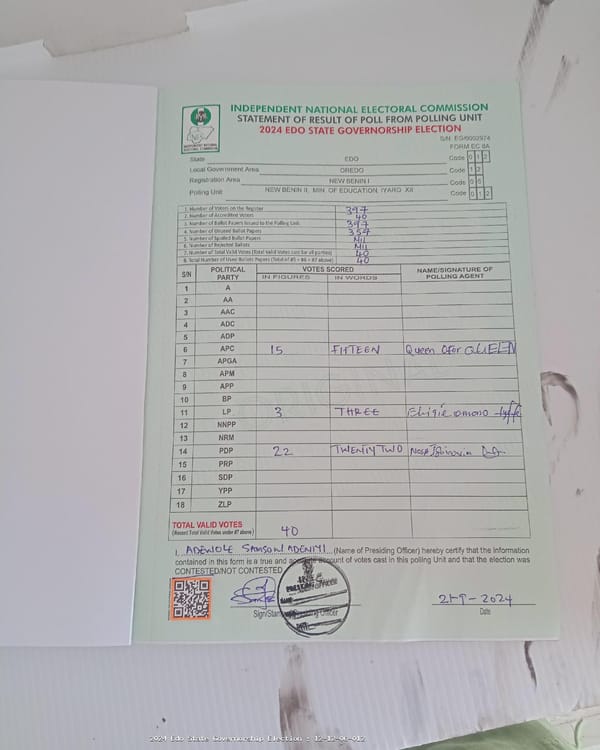 INDEPENDENT NATIONAL ELECTORAL COMMISSION
STATEMENT OF RESULT OF POLL FROM POLLING UNIT
2024 EDO STATE GOVERNORSHIP ELECTION
S/N: EG/0003974
FORM EC 8A
State EDO Code 0 1 2
Local Government Area OREDO Code 1 2
Registration Area NEW BENIN I Code 0 6
Polling Unit NEW BENIN II, MIN. OF EDUCATION, IYARO XII Code 0 1 2
1. Number of Voters on the Register 397
2. Number of Accredited Voters 40
3. Number of Ballot Papers Issued to the Polling Unit 397
4. Number of Unused Ballot Papers 357
5. Number of Spoiled Ballot Papers NIL
6. Number of Rejected Ballots NIL
7. Number of Total Valid Votes (Total Valid Votes cast for all parties) 40
8. Total Number of Used Ballots Papers (Total of #5 + #6 + #7 above) 40
S/N POLITICAL PARTY VOTES SCORED NAME/SIGNATURE OF POLLING AGENT
IN FIGURES IN WORDS
1 A
2 AA
3 AAC
4 ADC
5 ADP
6 APC 15 FIFTEEN Queen QUEEN
7 APGA
8 APM
9 APP
10 BP
11 LP 3 THREE
12 NNPP
13 NRM
14 PDP 22 TWENTY TWO Nosa
15 PRP
16 SDP
17 YPP
18 ZLP
TOTAL VALID VOTES 40
(Record Total Valid Votes under #7 above)
I, ADEWOLE SAMSON ADENIYI (Name of Presiding Officer) hereby certify that the information
contained in this form is a true and account of votes cast in this polling Unit and that the election was
CONTESTED/NOT CONTESTED
21-9-2024
Sign/Stamp Officer Date
2024 Edo State Governorship Election : 12-12-06-012